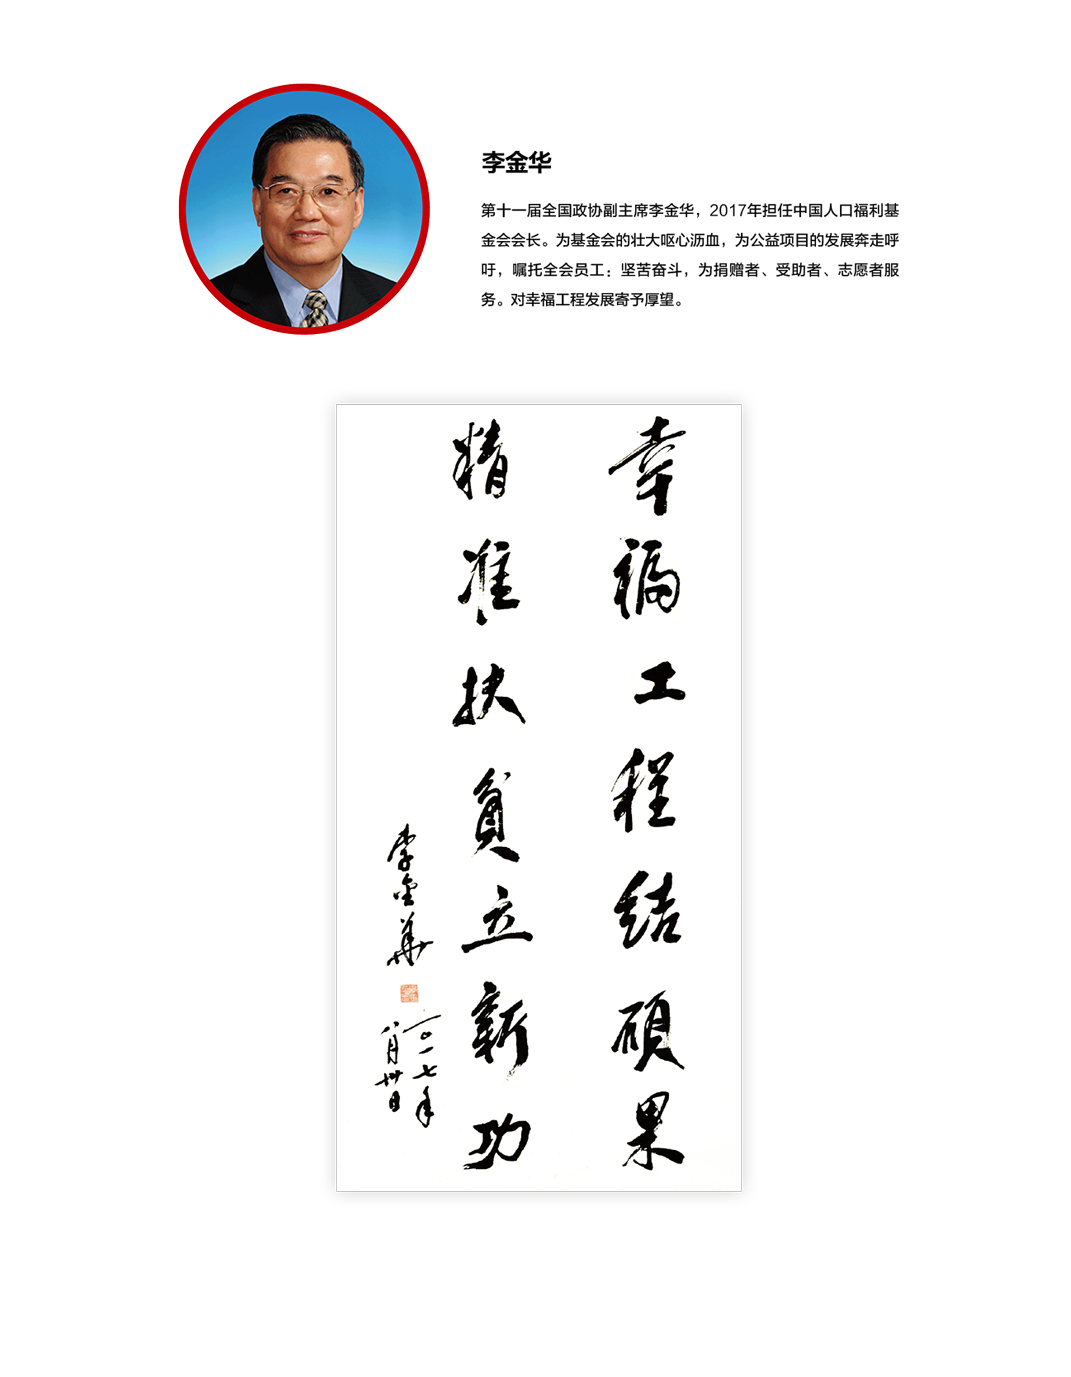 李金华
第十一届全国政协副主席李金华，2017年担任中国人口福利基
金会会长。为基金会的壮大呕心沥血，为公益项目的发展奔走呼
吁，嘱托全会员工：坚苦奋斗，为捐赠者、受助者、志愿者服
务。对幸福工程发展寄予厚望。
幸福工程结硕果
精准扶贫立新功
李金華
二〇一七年
八月卅日